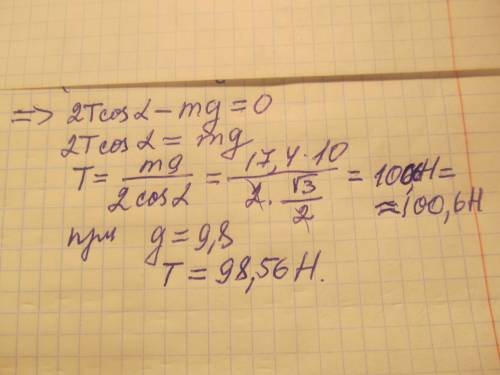 => 2Tcosα - mg = 0
2Tcosα = mg
T = mg / 2cosα = 17,4·10 / 2·√3/2 = Н =
≈ 100,6Н
при g = 9,8
T = 98,56Н.